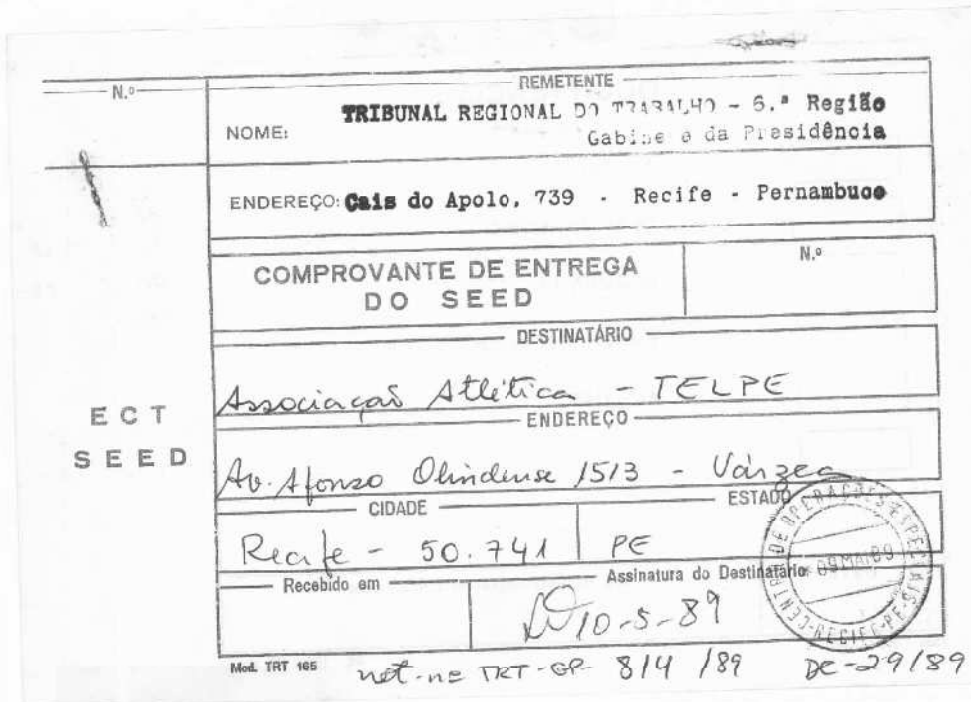 N.º
REMETENTE
NOME: TRIBUNAL REGIONAL DO TRABALHO - 6.ª Região
Gabinete da Presidência
ENDEREÇO: Cais do Apolo, 739 - Recife - Pernambuco
COMPROVANTE DE ENTREGA
DO SEED
N.º
DESTINATÁRIO
Associação Atlética - TELPE
ENDEREÇO
Av. Afonso Olindense 1513 - Várzea
CIDADE
ESTADO
Recife - 50.741
PE
Recebido em
Assinatura do Destinatário
10-5-89
ECT
SEED
CENTRO DE OPERAÇÕES ESPECIAIS
09 MAI 89
RECIFE-PE
Mod. TRT 165
not-nº TRT-GP- 814 /89 DC-29/89